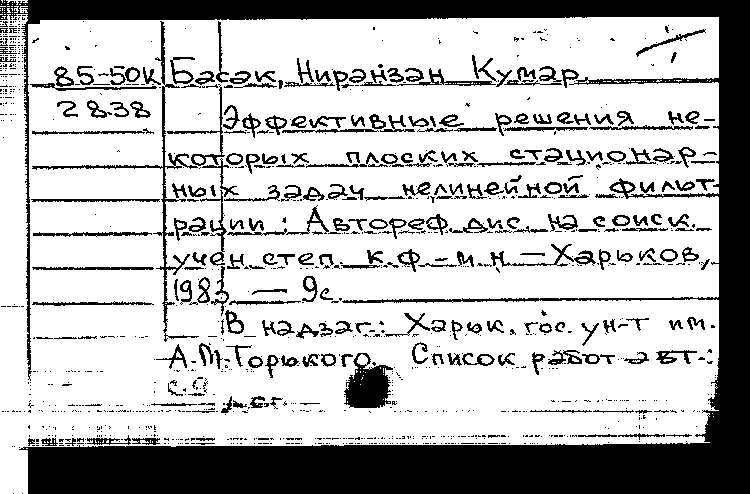 85-50К Басак, Ниранзан Кумар.
2838 Эффективные решения не-
которых плоских стационар-
ных задач нелинейной фильт-
рации : Автореф. дис. на соиск.
учен. степ. к.ф.-м.н. — Харьков,
1983. — 9с.
В надзаг.: Харьк. гос. ун-т им.
А.М.Горького. Список работ авт.:
с.9